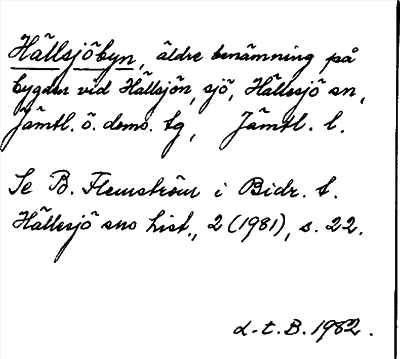 Hällsjöbyn, äldre benämning på
bygden vid Hällsjön, sjö, Hällesjö sn,
Jämtl. ö. doms. tg, Jämtl. l.
Se B. Flemström i Bidr. t.
Hällesjö sns hist., 2 (1981), s. 22.
d-t. B. 1982.